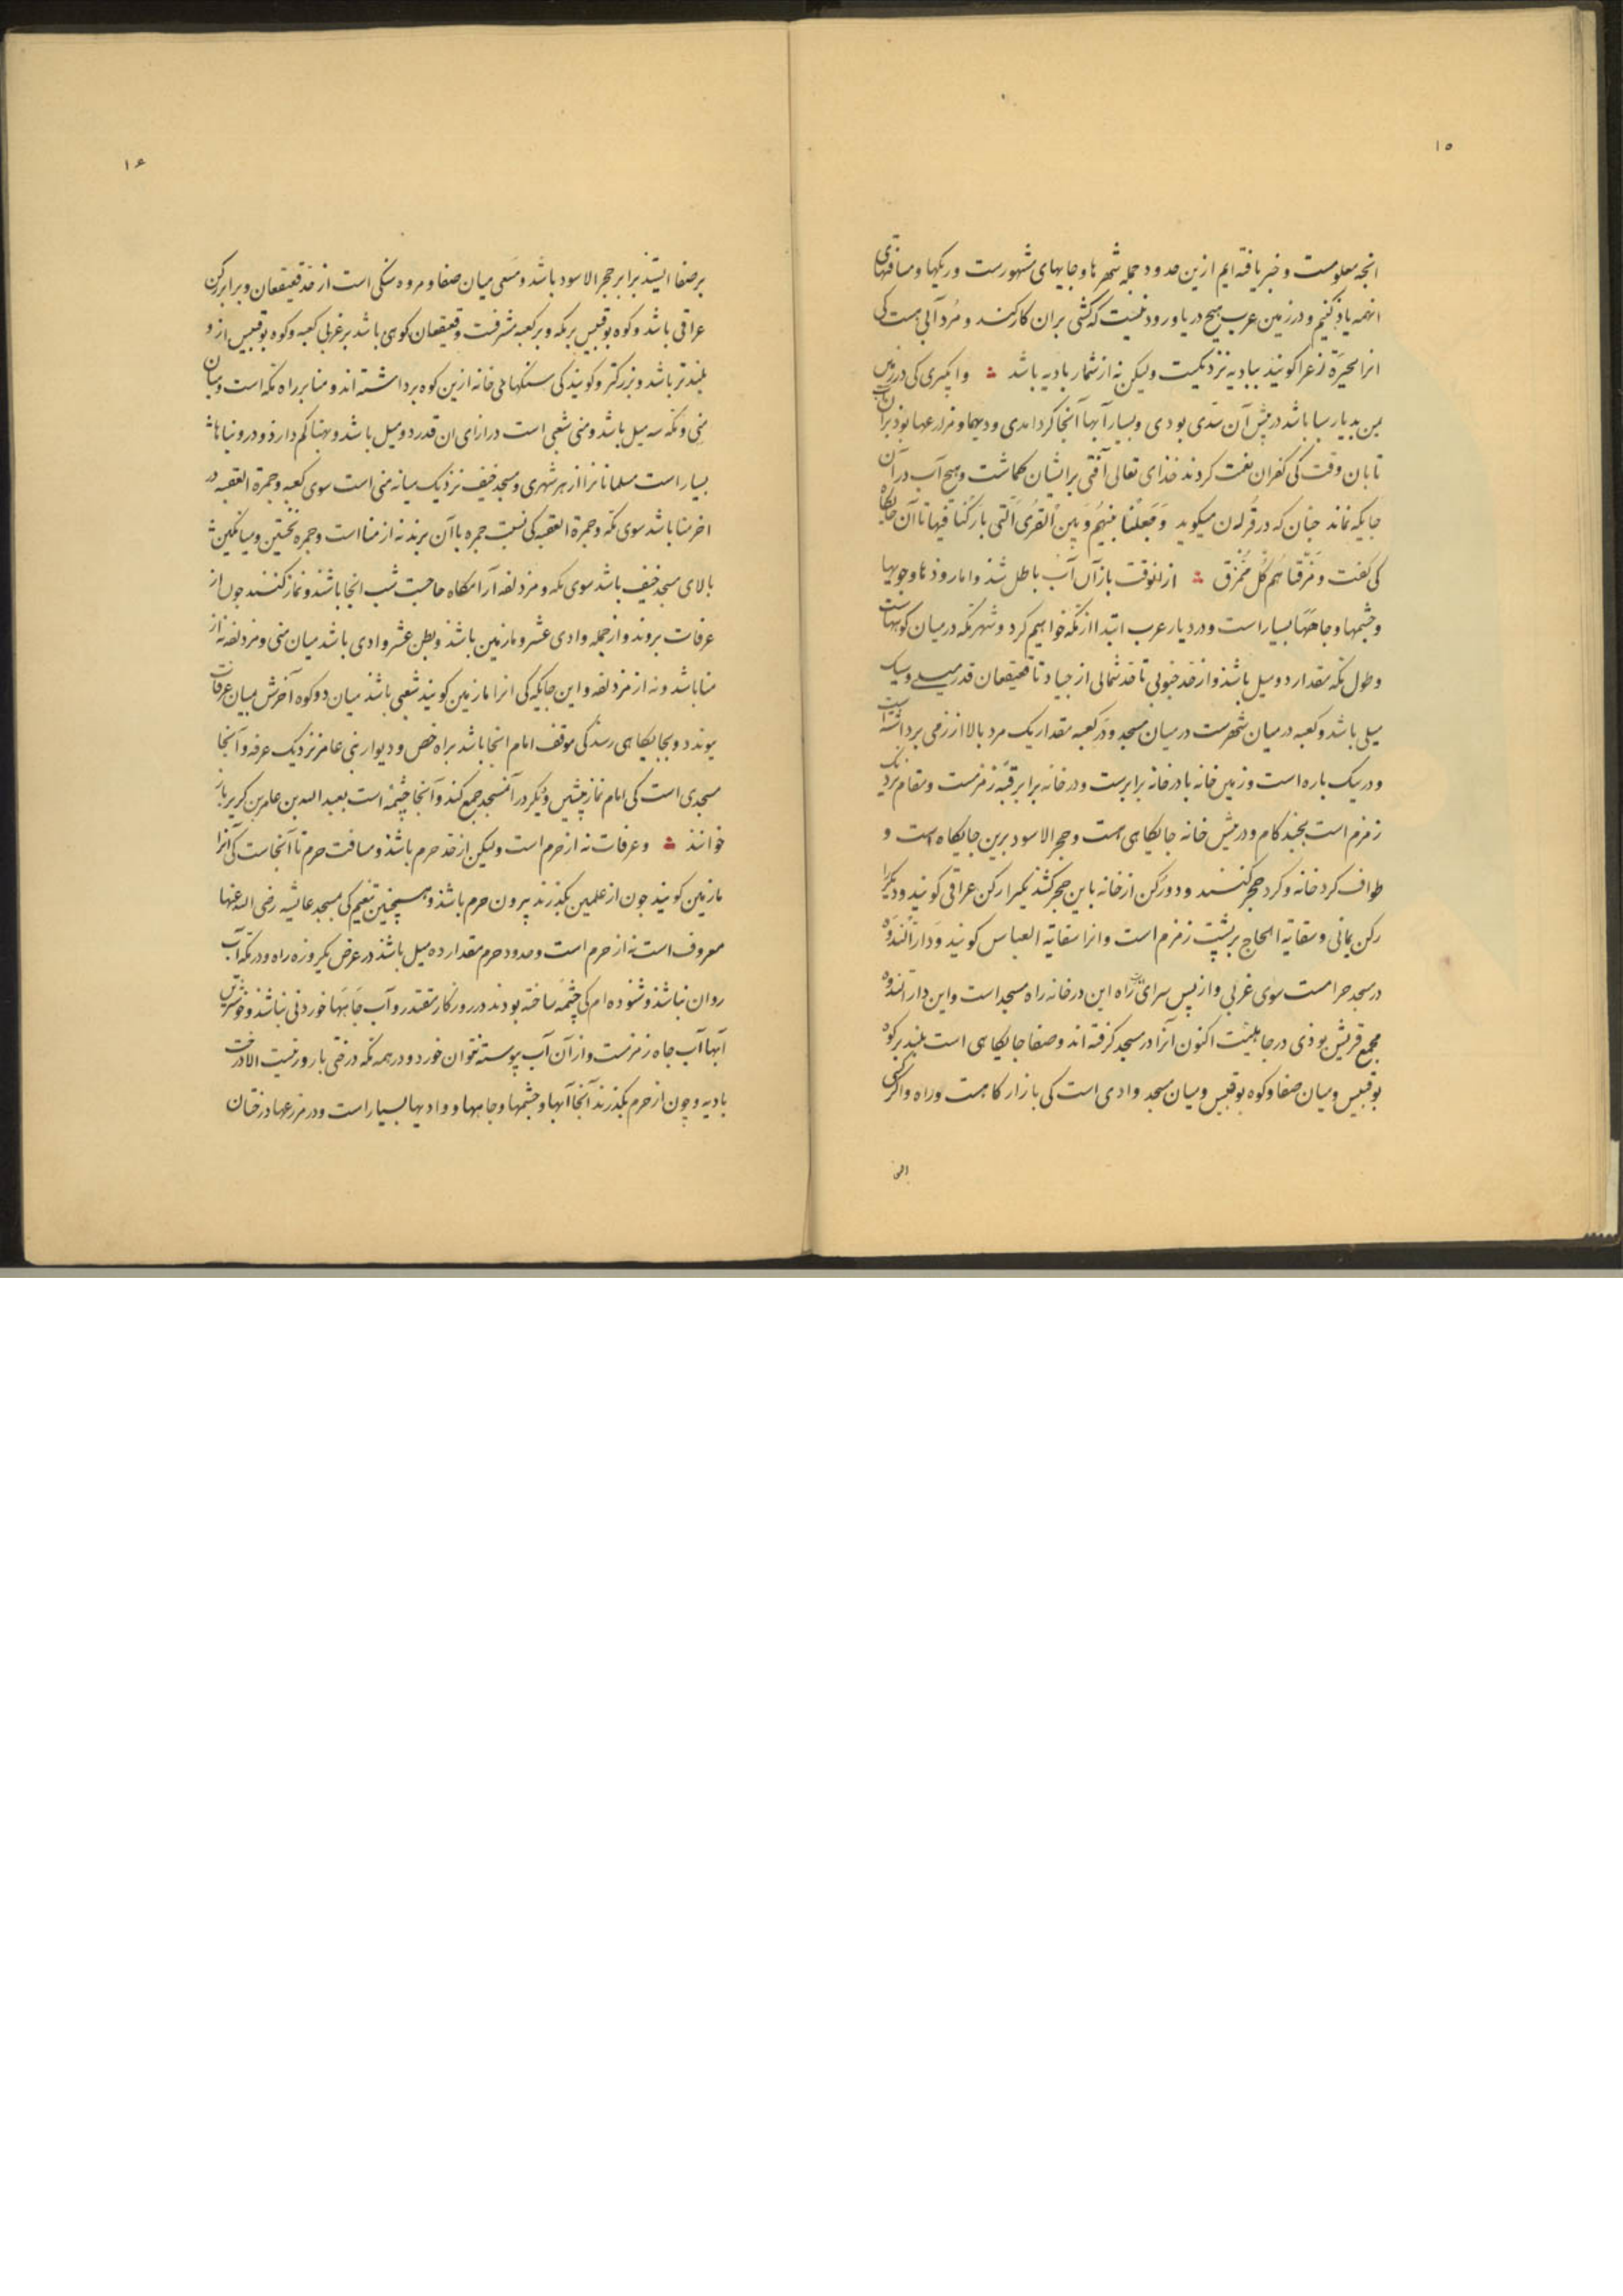 ۱۵
انجه معلومست و خبر یافته ایم ازین حدود جمله شهرها و جایهای مشهورست و ریکها و مسافتهای
انهمه یاذ کنیم و در زمین عرب هیچ دریا و رود نیست که کشتی بران کار کند و مرد آبی هست کی
انرا بحیرة زعرا کویند ببادیه نزدیکست ولیکن نه از شمار بادیه باشد ۞ و ابکیری کی در زمین
یمن بدیار سبا باشد در پیش آن سدی بودی و بسیار آبها آنجا کرد امدی و دیهها و مزرعها بوذ بران
تا بان وقت کی کفران نعمت کردند خذای تعالی آفتی بر ایشان کماشت و هیچ آب در آن
جایکه نماند جنان که در قرآن میکوید وَجَعَلْنا بَینَهُم وَ بَینَ القُرَی الَّتی بارَکْنا فیها تا آن جایکاه
کی کفت و مَزَّقناهُم کُلَّ مُمَزَّق ۞ از انوقت باز آن آب باطل شذ و اما روذها و جویها
و جشمها و جاهها بسیار است و در دیار عرب ابتدا از مکه خواهیم کرد و شهر مکه در میان کوههاست
و طول مکه مقدار دو میل باشذ و از حد جنوبی تا حد شمالی از جیاد تا قعیقعان قدر میلی و سیک
میلی باشد و کعبه در میان شهرست در میان مسجد و در کعبه مقدار یک مرد بالا از زمی برداشته است
و در یک باره است و زمین خانه با در خانه برابرست و در خانه برابر قبّه زمزمست و مقام نزدیک
زمزم است بجند کام و در پیش خانه جایکاهی هست و حجر الاسود برین جایکاه است و
طواف کرد خانه و کرد حجر کنند و دو رکن از خانه باین حجر کشذ یکیرا رکن عراقی کویند و دیکرا
رکن یمانی و سقایة الحاج بر پشت زمزم است و انرا سقایة العباس کویند و دار النَّدوَه
در مسجد حرامست سوی غربی و از پس سرای راه این در خانه راه مسجد است و این دار النَّدوه
مجمع قریش بوذی در جاهلیّت اکنون آنرا در مسجد کرفته اند و صفا جایکاهی است بلند بر کوه
بوقبیس و میان صفا و کوه بوقبیس و میان مسجد وادی است کی بازار کاهست و راه و اکر کسی
۱۶
بر صفا ایستذ برابر حجر الاسود باشد و مسعی میان صفا و مروه سنکی است از حد قعیقعان و برابر رکن
عراقی باشد و کوه بوقبیس بر مکه و بر کعبه مشرفست و قعیقعان کوهی باشد بر غربی کعبه و کوه بوقبیس از و
بلندتر باشد و بزرکتر و کویند کی سنکهای خانه ازین کوه برداشته اند و منا بر راه مکه است و میان
منی و مکه سه میل باشد و منی شعبی است درازای ان قدر دو میل باشد و بهنا کم دارد و درو بناهاء
بسیار است مسلمانانرا از هر شهری و مسجد خیف نزدیک میانه منی است سوی کعبه و جمرة العقبه در
اخر منا باشد سوی مکه و جمرة العقبه کی نسبت جمره باآن برند نه از منا است و جمره نخستین و میانکین ث
بالای مسجد خیف باشد سوی مکه و مزدلفه آرامکاه حاجست شب انجا باشند و نماز کنند جون از
عرفات بروند و از جمله وادی عشر و مازمین باشذ و بطن عشر وادی باشد میان منی و مزدلفه نه از
منا باشد و نه از مزدلفه و این جایکه کی انرا مازمین کویند شعبی باشذ میان دو کوه آخرش میان عرفات
بوندد و بجایکاهی رسد کی موقف امام انجا باشد براه خص و دیوار بنی عامر نزدیک عرفه و آنجا
مسجدی است کی امام نماز پیشین و دیکر در آنمسجد جمع کند و آنجا چشمه است بعبد الله بن عامر بن کریز باز
خوانند ۞ و عرفات نه از حرم است ولیکن از حد حرم باشذ و مسافت حرم تا آنجاست کی آنرا
مازمین کویند جون از علمین بکذرند بیرون حرم باشذ و همچنین تنعیم کی مسجد عایشه رضی الله عنها
معروف است نه از حرم است و حدود حرم مقدار ده میل باشذ در عرض یکروزه راه و در مکه آب
روان نباشذ و شنوده ام کی چشمه ساخته بودند در روزکار مقتدر و آب جاهها خوردنی نباشذ و خوشترین
آبها آب جاه زمزمست و از آن آب پیوسته نتوان خورد و در همه مکه درختی بارور نیست الا درخت
بادیه و چون از حرم بکذرند آنجا آبها و جشمها و جاهها و وادیها بسیار است و در مزرعها درختان